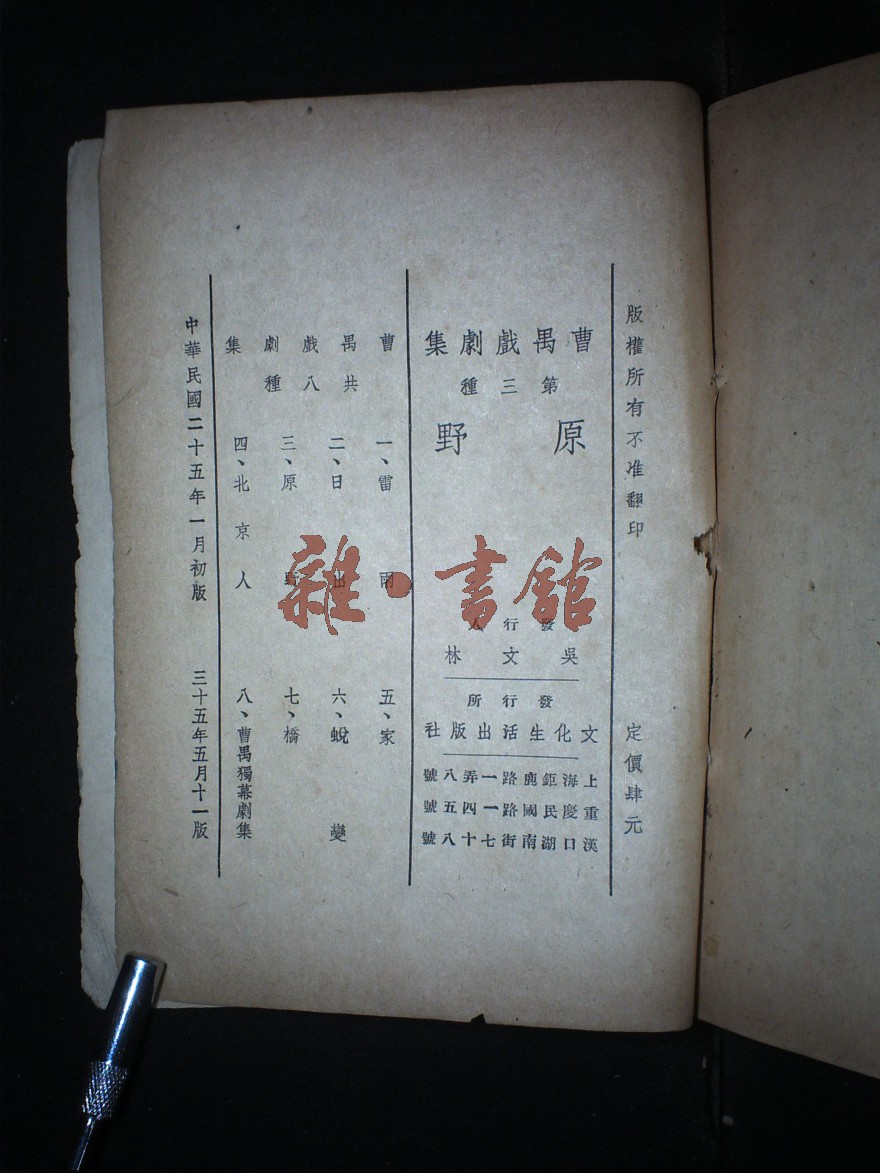 版權所有不准翻印
定價肆元
曹禺戲劇集
第三種
原野
發行人
吳文林
發行所
文化生活出版社
上海鉅鹿路一弄八號
重慶民國路一四五號
漢口湖南街七十八號
曹禺戲劇集
共八種
一、雷雨
二、日出
三、原野
四、北京人
五、家
六、蛻變
七、橋
八、曹禺獨幕劇集
中華民國二十五年一月初版
三十五年五月十一版
雜·書館